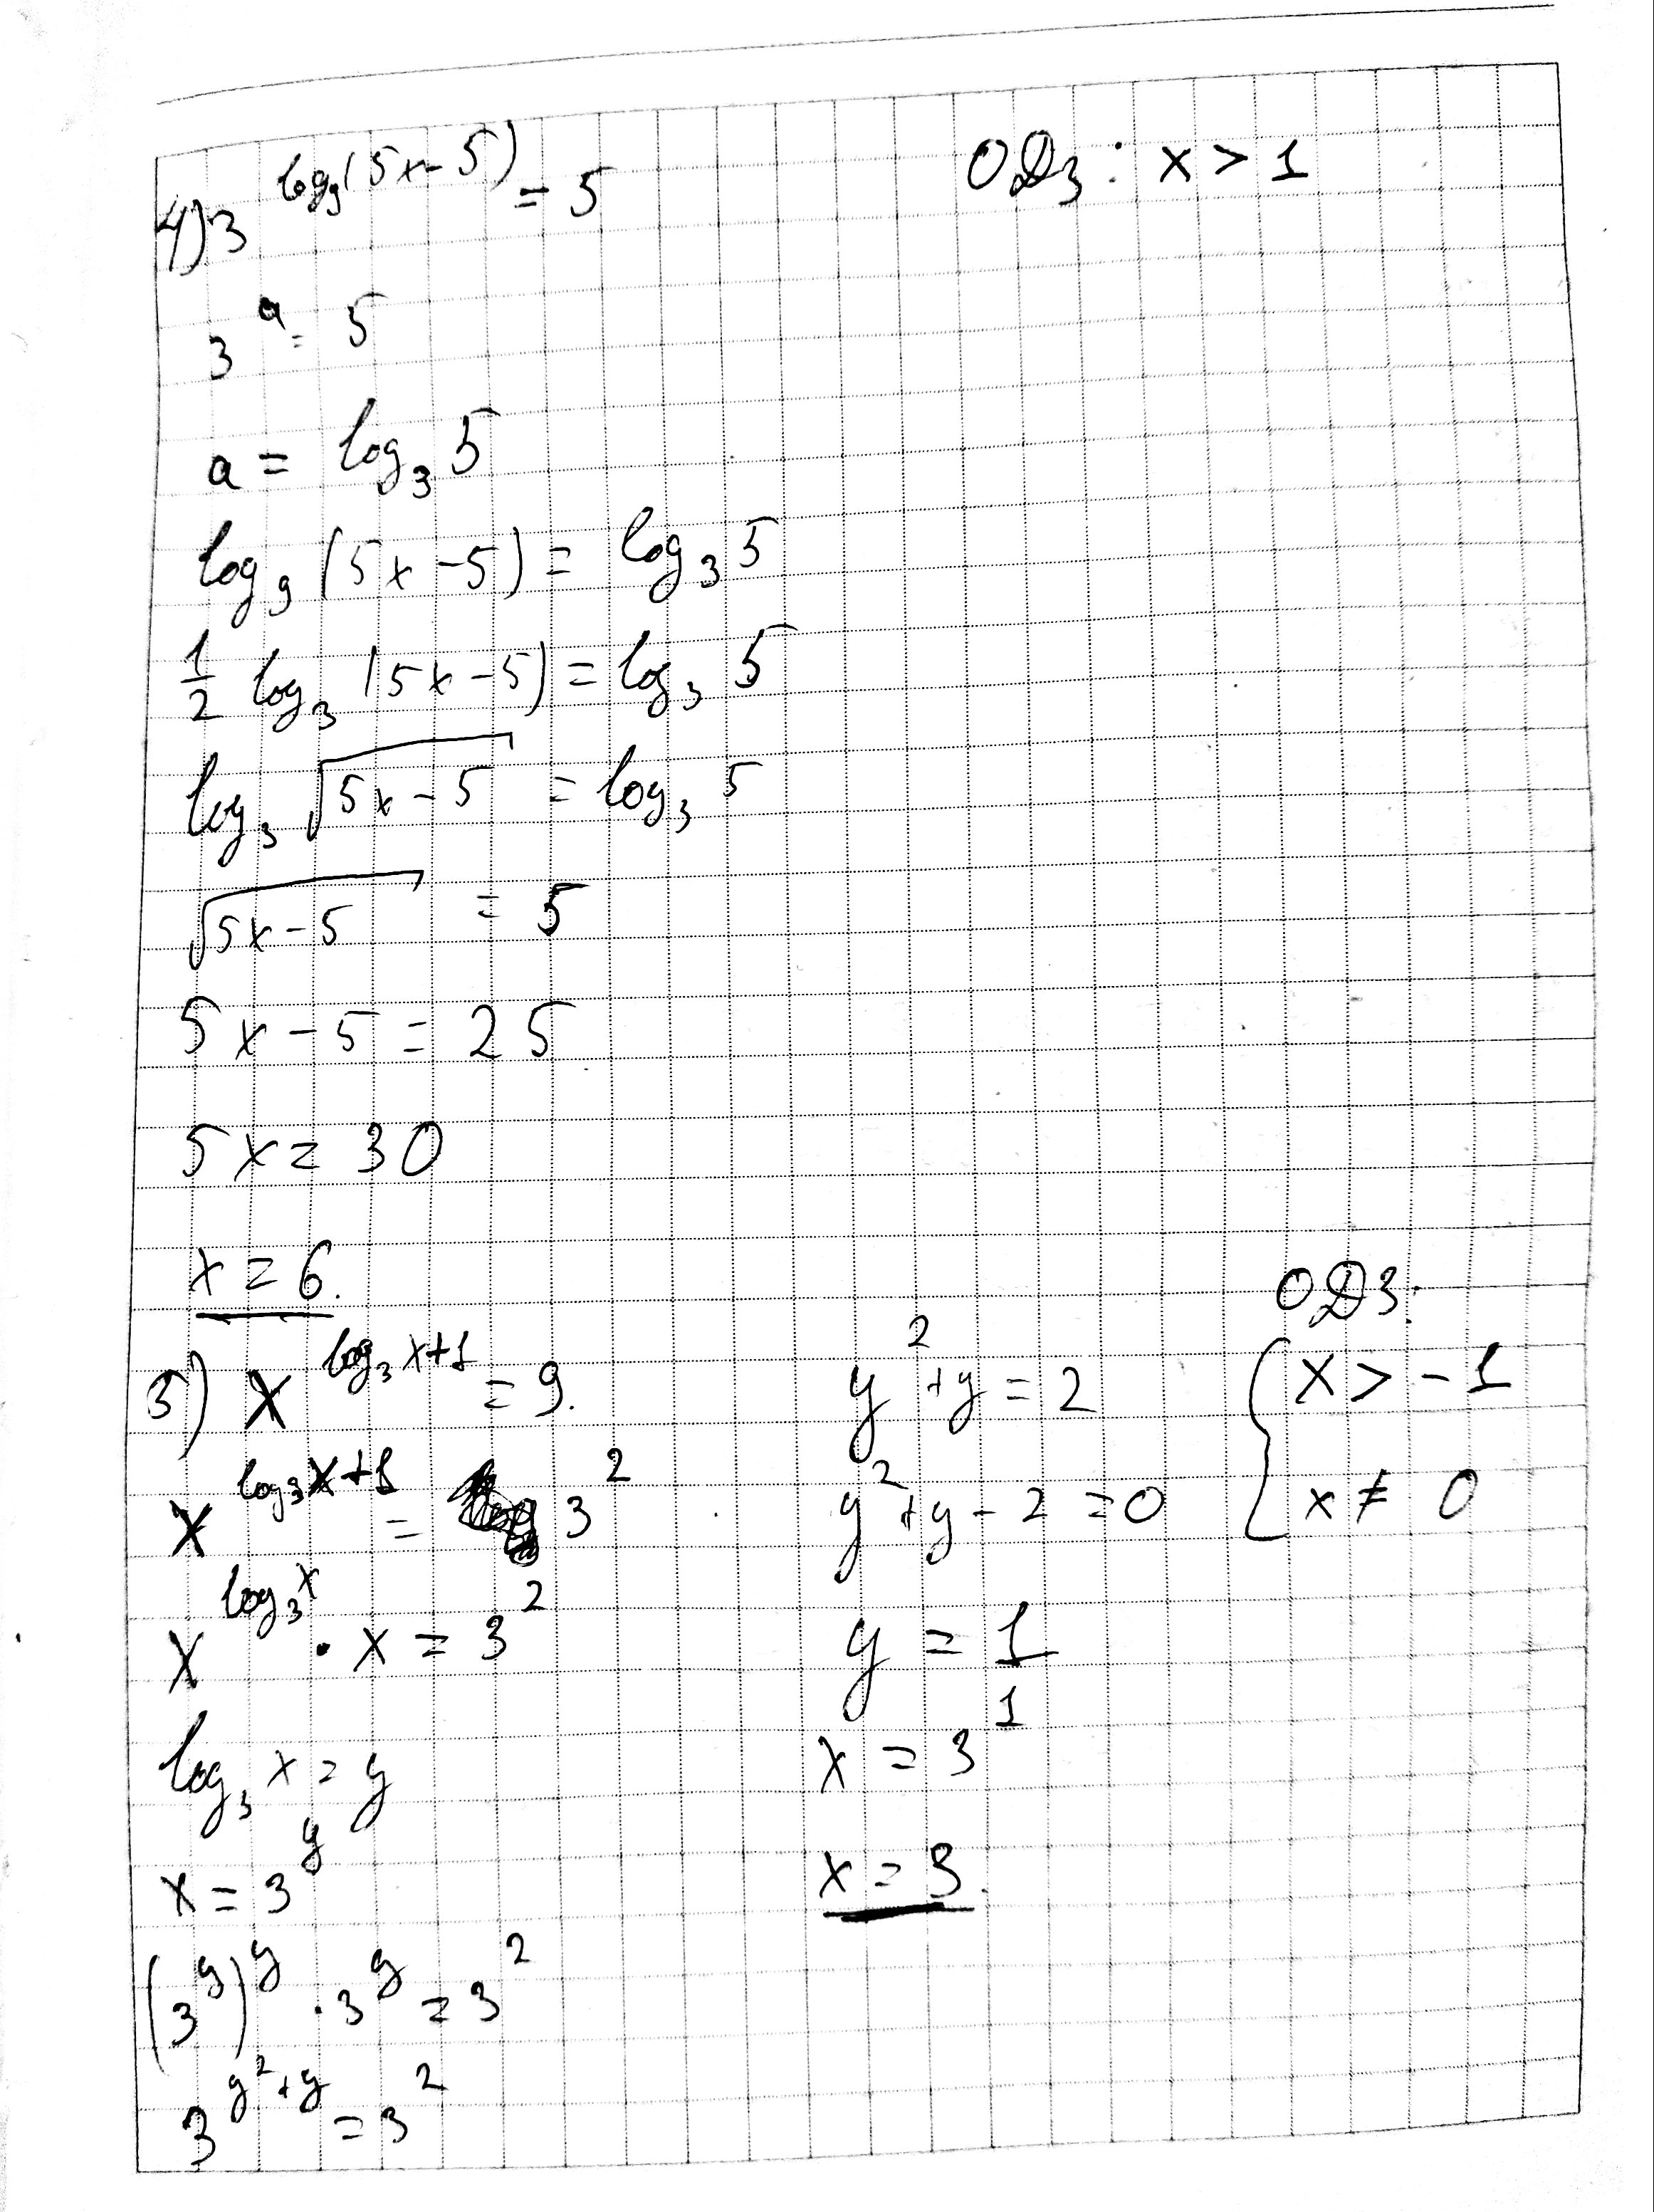 4) 3^{log_9(5x-5)} = 5
ОДЗ: x > 1
3^a = 5
a = log_3 5
log_9 (5x-5) = log_3 5
\frac{1}{2} log_3 (5x-5) = log_3 5
log_3 \sqrt{5x-5} = log_3 5
\sqrt{5x-5} = 5
5x - 5 = 25
5x = 30
x = 6.
5) x^{log_3 x+1} = 9.
x^{log_3 x+1} = 3^2
x^{log_3 x} · x = 3^2
log_3 x = y
x = 3^y
(3^y)^y · 3^y = 3^2
3^{y^2+y} = 3^2
y^2 + y = 2
y^2 + y - 2 = 0
y = 1
x = 3^1
x = 3.
ОДЗ:
{ x > -1
x ≠ 0